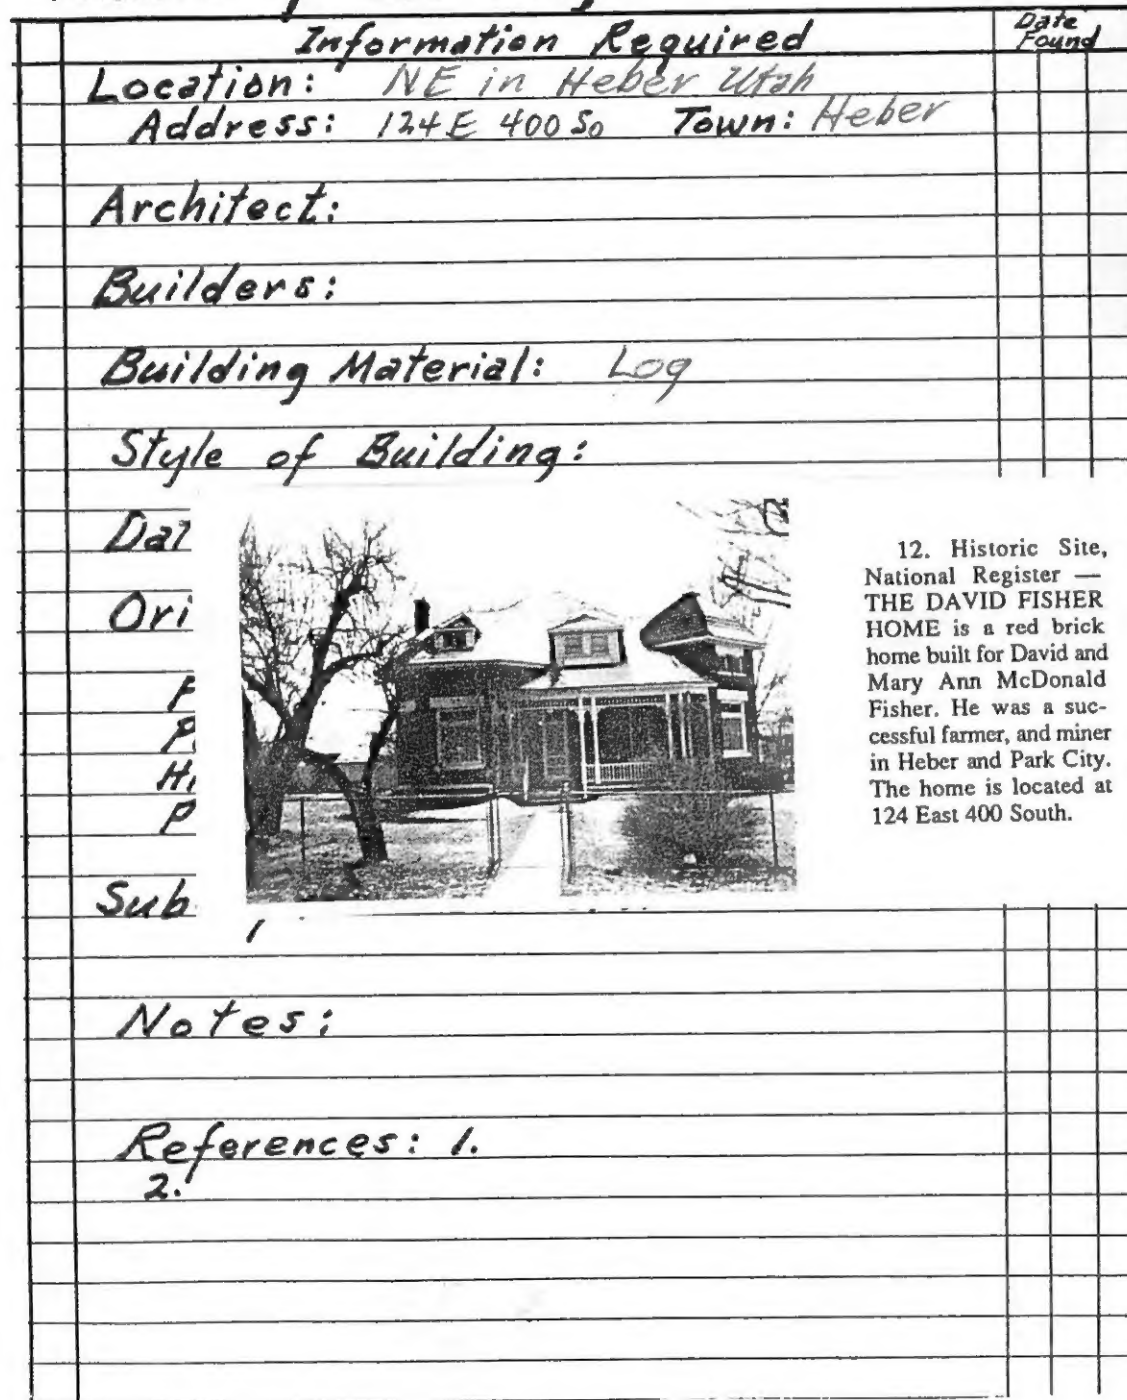 Information Required
Date Found
Location: NE in Heber Utah
Address: 124 E 400 So Town: Heber
Architect:
Builders:
Building Material: Log
Style of Building:
Dat
Ori
P
P
Hi
P
Sub
1
12. Historic Site,
National Register —
THE DAVID FISHER
HOME is a red brick
home built for David and
Mary Ann McDonald
Fisher. He was a suc-
cessful farmer, and miner
in Heber and Park City.
The home is located at
124 East 400 South.
Notes:
References: 1.
2.